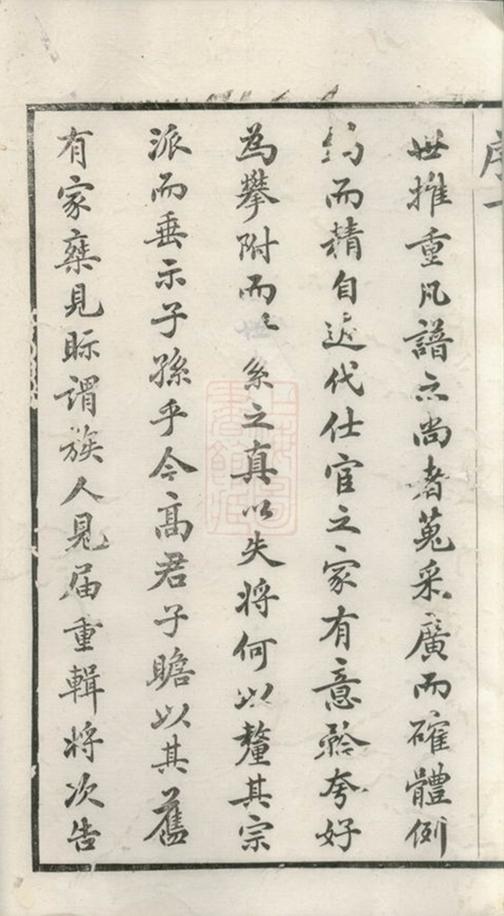 序一
世推重凡譜之尚者蒐采廣而確體例
約而精自近代仕宦之家有意矜夸好
為攀附而世系之真以失將何以釐其宗
派而垂示子孫乎今高君子瞻以其舊
有家乘見眎謂族人見屆重輯將次告
上海圖書館藏